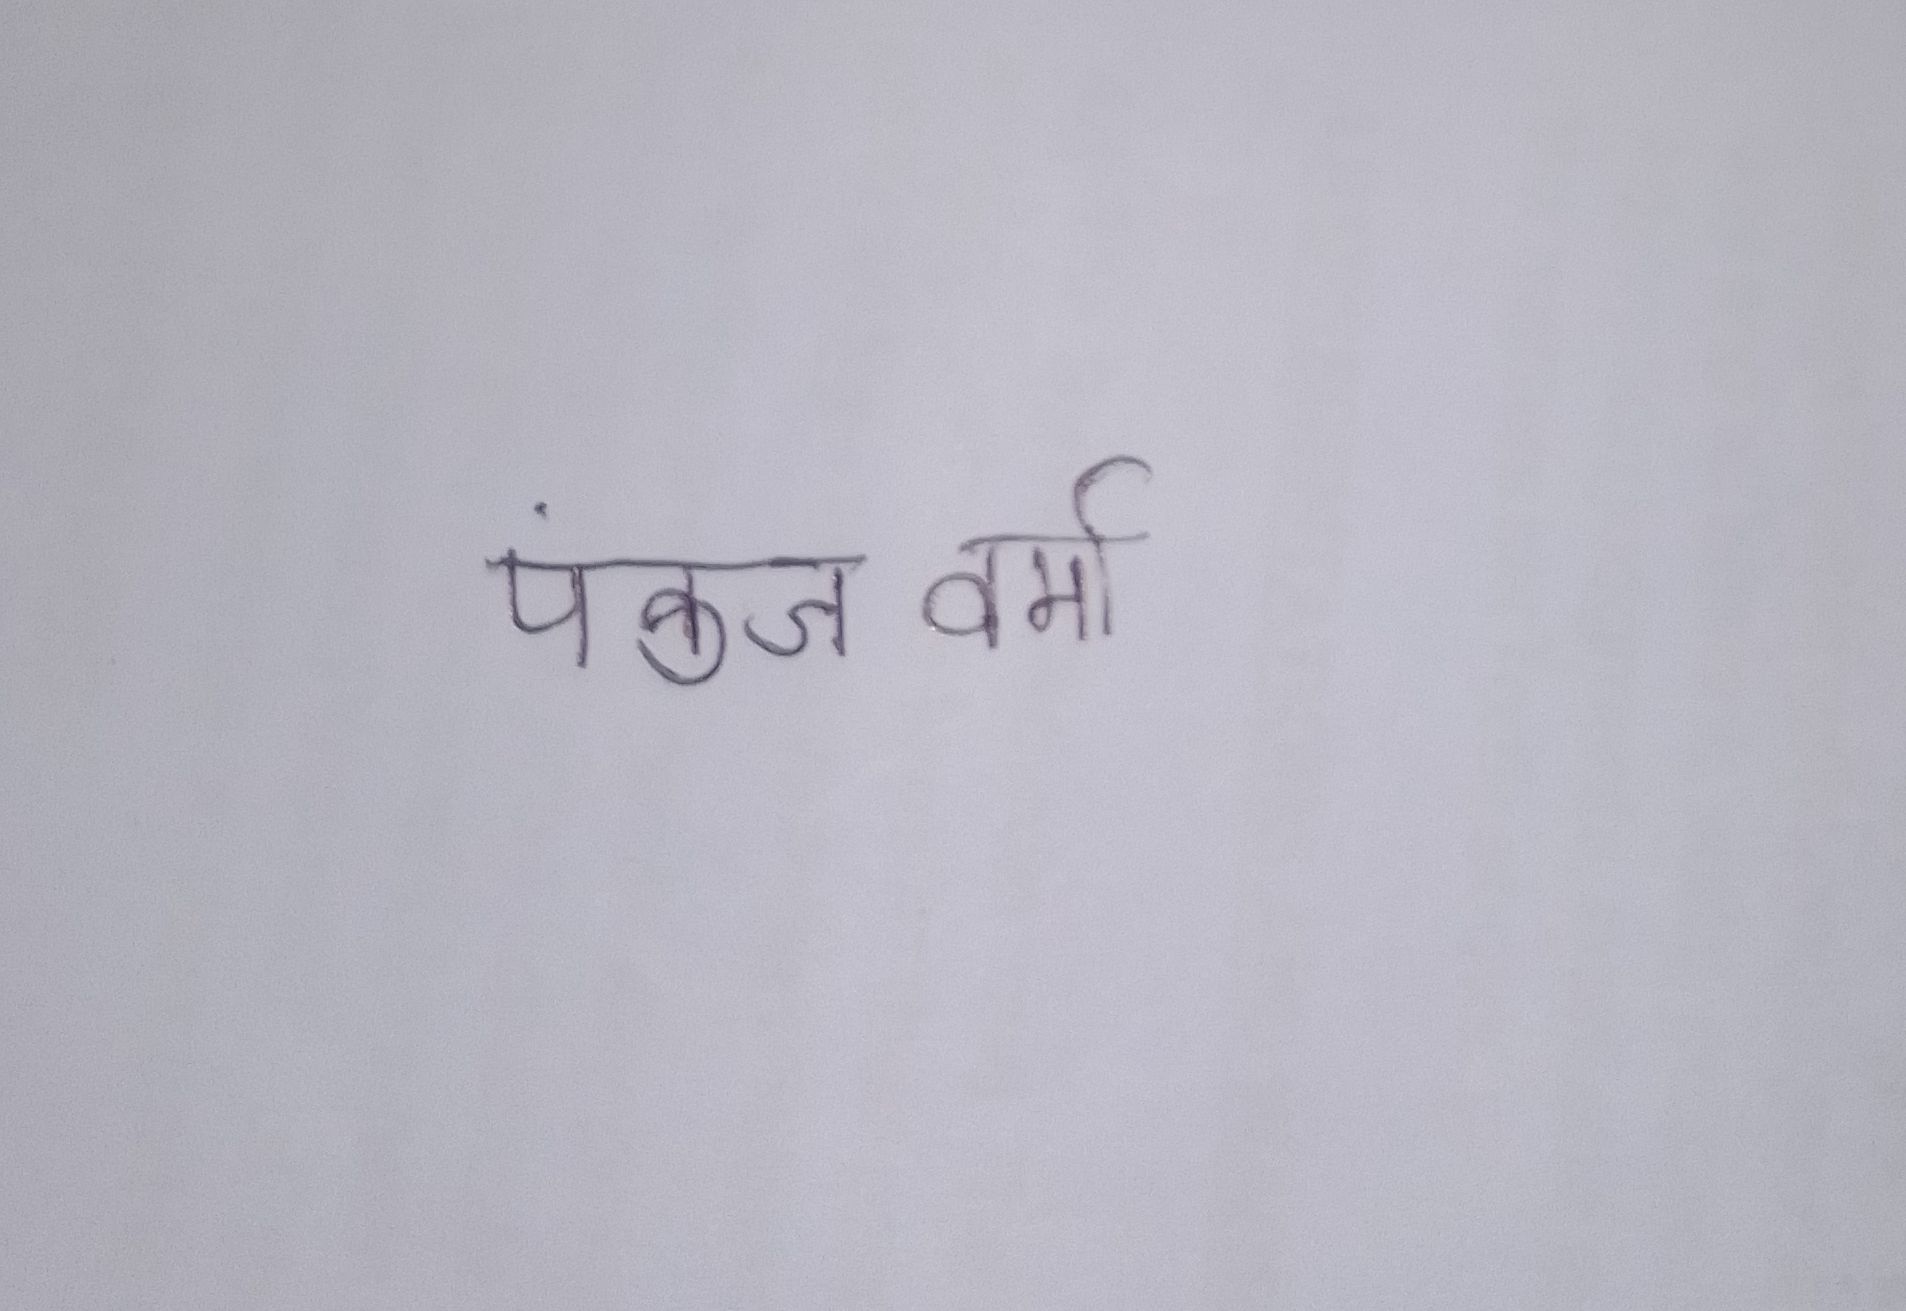 पंकज वर्मा